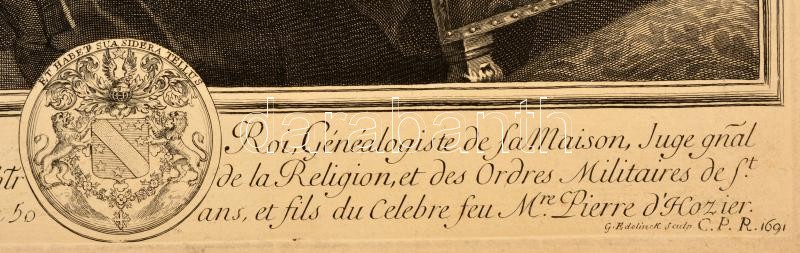 ET HABET SUA SIDERA TELLUS
darabanth
Roi, Généalogiste de sa Maison, Juge gñal
str de la Religion, et des Ordres Militaires de St.
50 ans, et fils du Celebre feu Mre. Pierre d'Hozier.
G. Edelinck Sculp C. P. R. 1691